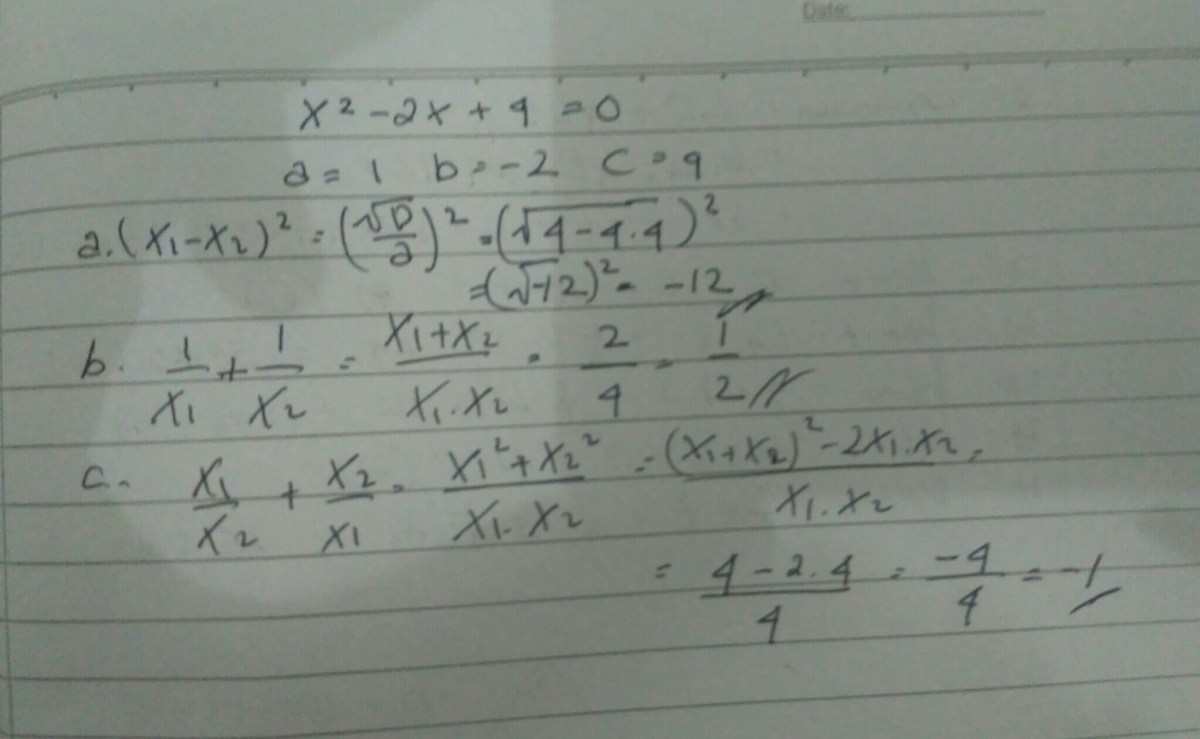 Date:
x² - 2x + 4 = 0
a = 1 b = -2 c = 4
a. (x₁-x₂)² = (√D/a)² = (√4-4.4)²
=(√-12)² = -12
b. 1/x₁ + 1/x₂ = x₁+x₂/x₁.x₂ = 2/4 = 1/2
c. x₁/x₂ + x₂/x₁ = x₁²+x₂²/x₁.x₂ = (x₁+x₂)²-2x₁.x₂/x₁.x₂ =
= 4-2.4/4 = -4/4 = -1